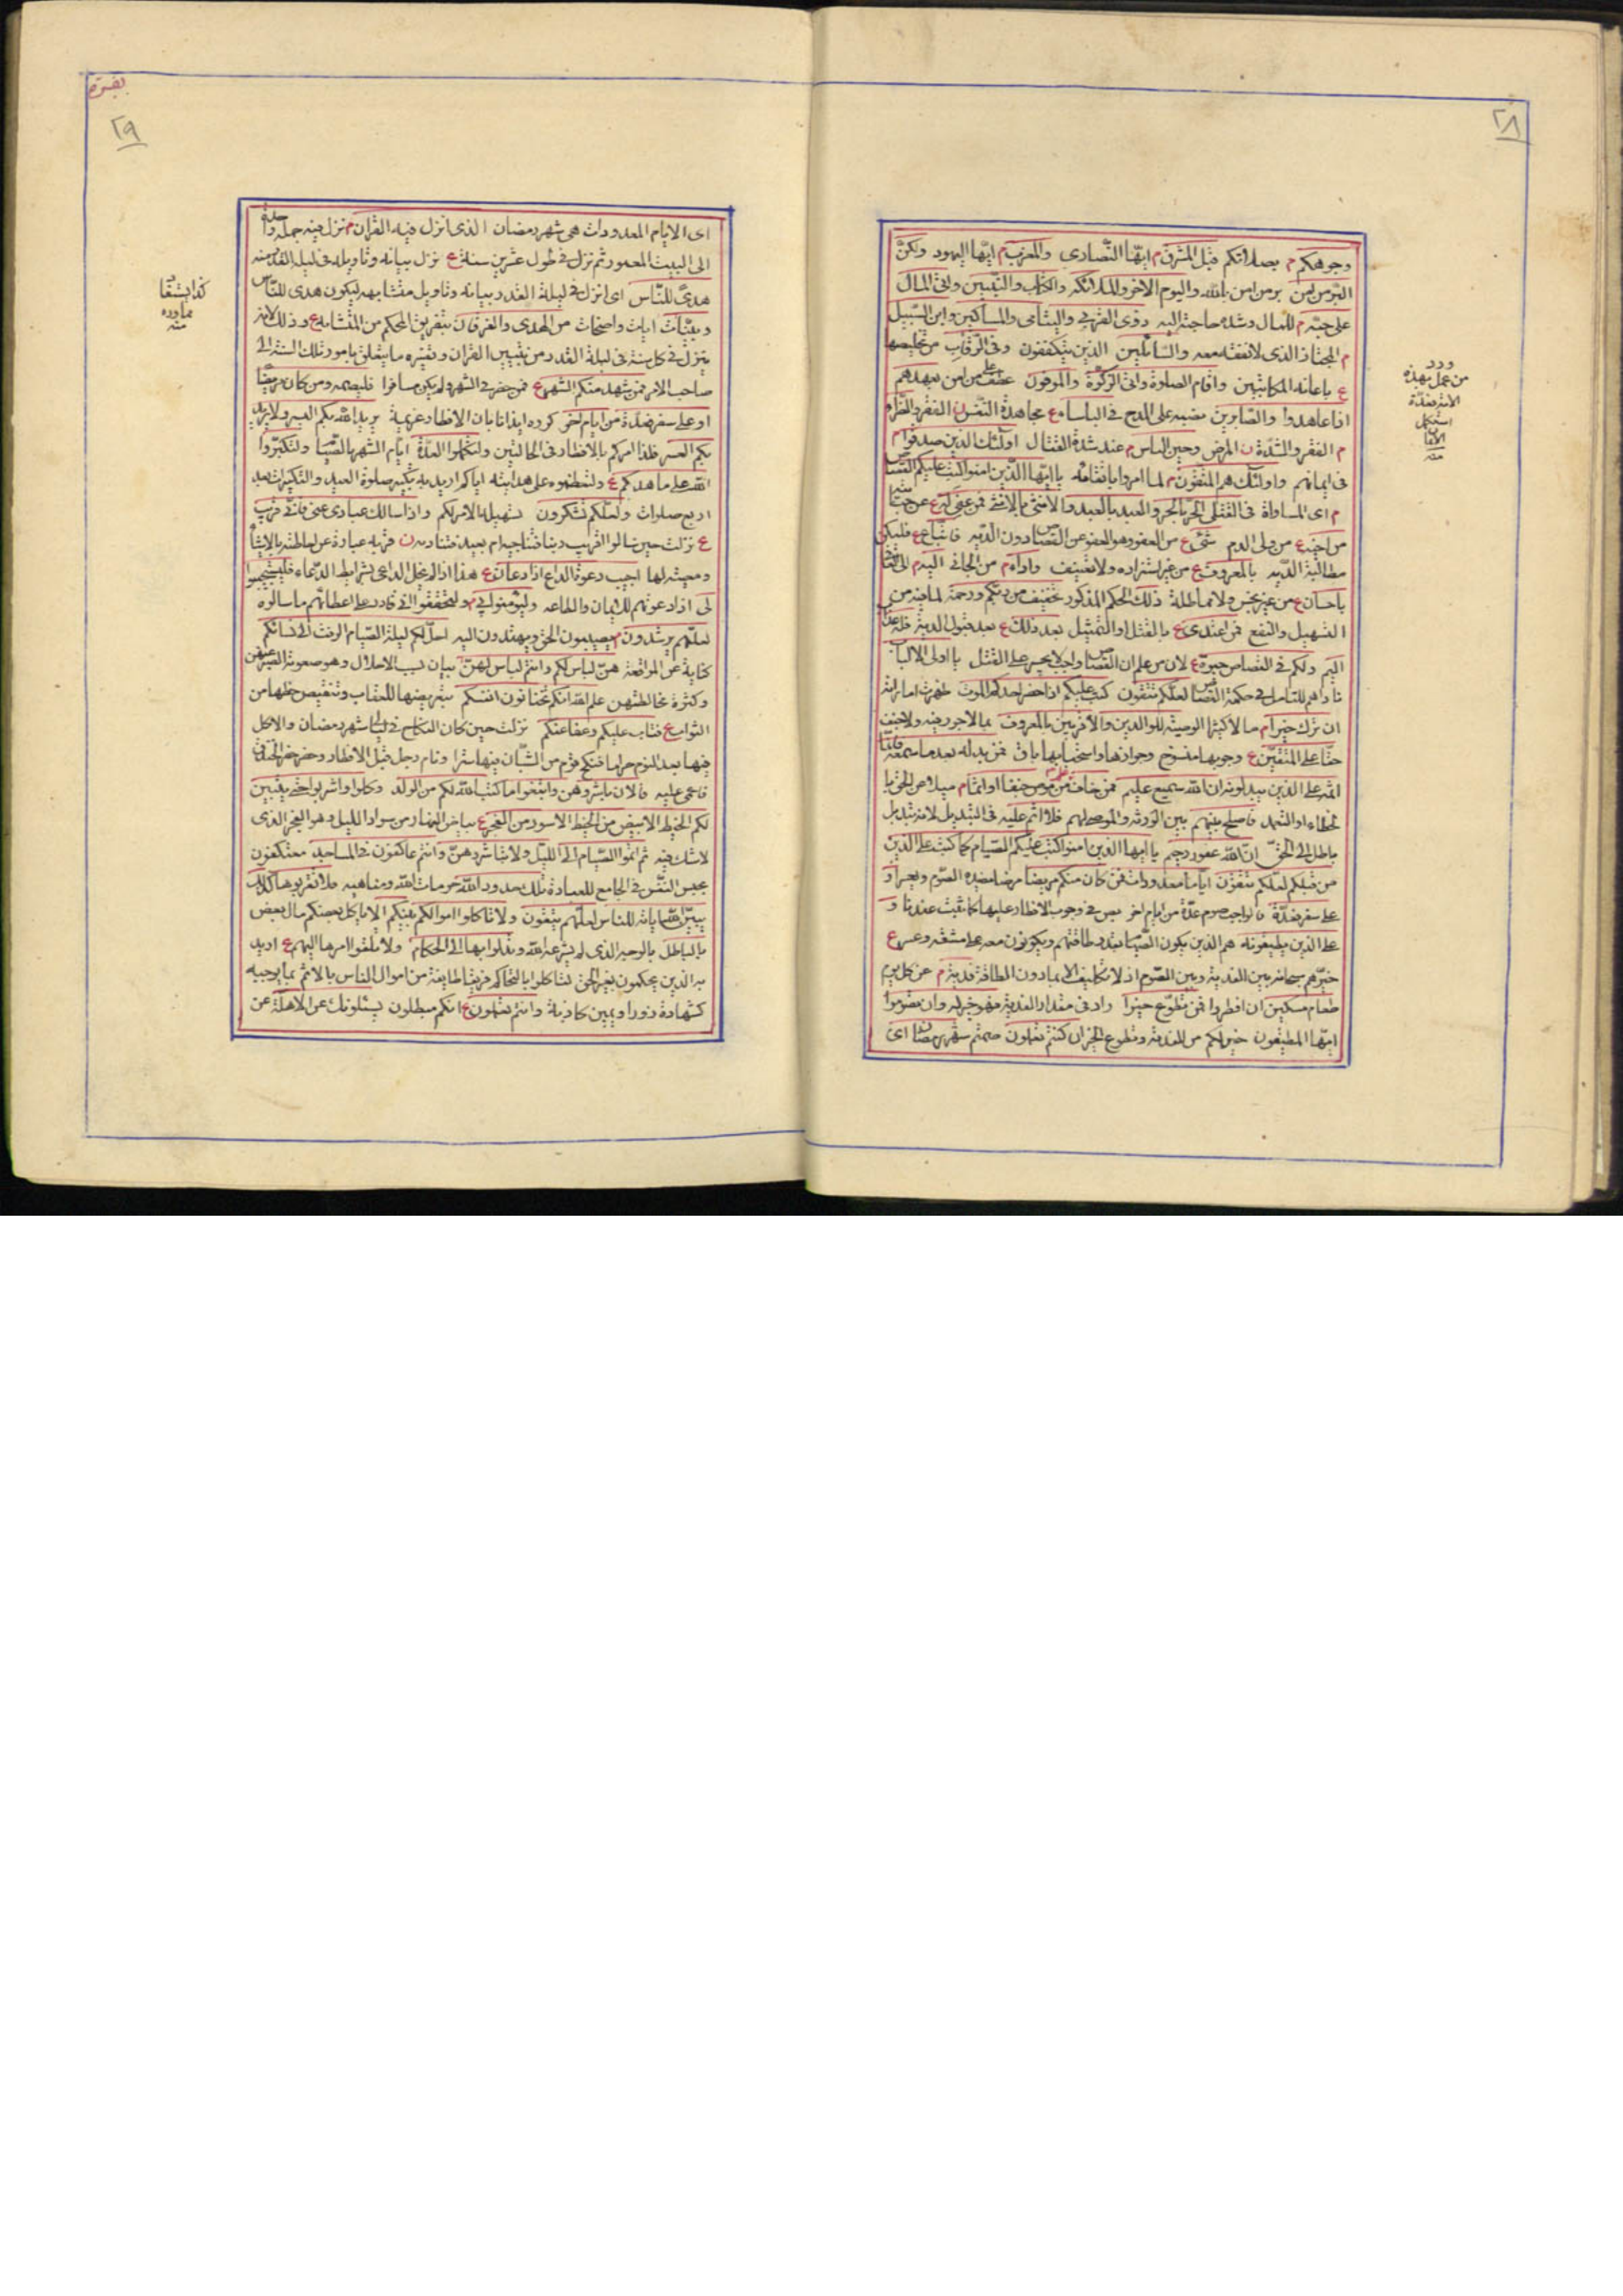 ٢٨
وجوهكم م بصلاتكم قبل المشرق م ايّها النّصارى والمغرب م ايّها اليهود ولكنّ
البرّ من امن بر من امن بالله واليوم الاخر والملائكة والكتاب والنّبيين واتى المال
على حبّه م للمال وشدة حاجته اليه ذوى القربى واليتامى والمساكين وابن السّبيل
م المجتاز الذى لا نفقة معه والسّائلين الذين يتكففون وفى الرّقاب من تخليصها
ع باعانه المكاتبين واقام الصلوة واتى الزّكوة والموفون عطف على من امن بعهدهم
اذا عاهدوا والصّابرين نصبه على المدح فى الباساء ع مجاهدة النّفس ن الفقر والضّراء
م الفقر والشّدّة ن المرض وحين الباس م عند شدة القتال اولئك الذين صدقوا م
فى ايمانهم واولئك هم المتقون م لما امروا باتقائه يا ايّها الّذين امنوا كتب عليكم القصاص
م اى المساواة فى القتلى الحرّ بالحرّ والعبد بالعبد والانثى بالانثى فمن عفى له ع
من اخيه ع من ولى الدم شئ ع من العفو وهو العفو عن القصاص دون الدّيه فاتّباع ع فليكن
مطالبة الدّيه بالمعروف ع من غير استزاده ولا تعنيف واداء م من الجانى اليه م
باحسان ع من غير بخس ولا مماطلة ذلك الحكم المذكور تخفيف من ربّكم ورحمة لما فيه من
التسهيل والنفع فمن اعتدى ع بالقتل او التمثيل بعد ذلك ع بعد قبول الدية فله عذاب
اليم ولكم فى القصاص حيوة ع لان من علم ان القصاص واجب لا يجسر على القتل يا اولى الالباب
ناداهم للتامل فى حكمة القصاص لعلكم تتقون كتب عليكم اذا حضر احدكم الموت ظهرت اماراته
ان ترك خيرا م مالا كثيرا الوصية للوالدين والاقربين بالمعروف بما لا جور فيه ولا جنف
حقّا على المتّقين ع وجوبها منسوخ وجوازها واستحبابها باق فمن بدله بعد ما سمعه فانّما
اثمه على الذين يبدلونه ان الله سميع عليم فمن خاف من موص جنفا او اثما م ميلا عن الحق بالـ
لخطاء او التعمد فاصلح بينهم بين الورثة والموصى لهم فلا اثم عليه فى التبديل لانه تبديل
باطل الى الحقّ ان الله غفور رحيم يا ايها الذين امنوا كتب عليكم الصّيام كما كتب على الذين
من قبلكم لعلكم تتقون اياما معدودات فمن كان منكم مريضا مرضا يضره الصّوم ويعسر او
على سفر فعدّة فالواجب صوم عدّة من ايام اخر نص فى وجوب الافطار عليها كما ثبت عندنا و
على الذين يطيقونه هم الذين يكون الصّيام بقدر طاقتهم ويكونون معه على مشقه وعسر ع
خيّرهم سبحانه بين الفدية وبين الصّوم اذ لا تكليف الا بما دون الطاقة فدية م عن كل يوم
طعام مسكين ان افطروا فمن تطوّع خيرا زاد فى مقدار الفدية فهو خير له وان تصوموا
ايّها المطيقون خير لكم من الفدية وتطوع الخير ان كنتم تعلمون صمتم شهر رمضان اى
ورد
من عمل بهذه
الاية فقد
استكمل
الايمان
منه
بقرة
٢٩
اى الايام المعدودات هى شهر رمضان الذى انزل فيه القران م نزل فيه جملة واحدة
الى البيت المعمور ثم نزل فى طول عشرين سنة ع نزل بيانه وتاويله فى ليلة القدر منه
هدىً للنّاس اى انزل فى ليلة القدر بيانه وتاويل متشابهه ليكون هدى للنّاس
وبيّنات ايات واضحات من الهدى والفرقان بتفريق المحكم من المتشابه ع وذلك لانه
ينزل فى كل سنة فى ليلة القدر من تبيين القران وتفسيره ما يتعلق بامور تلك السنة الى
صاحب الامر فمن شهد منكم الشهر ع فمن حضر فى الشهر ولم يكن مسافرا فليصمه ومن كان مريضا
او على سفر فعدّة من ايام اخر كرره ايذانا بان الافطار عزيمة يريد الله بكم اليسر ولا يريد
بكم العسر فلذا امركم بالافطار فى الحالتين ولتكملوا العدّة ايّام الشهر بالصّيام ولتكبّروا
الله على ما هديكم ع ولتعظموه على هدايته اياكم اريد به تكبير صلوة العيد والتكبيرات بعد
اربع صلوات ولعلّكم تشكرون تسهيله الامر لكم واذا سالك عبادى عنى فانّى قريب
ع نزلت حين سالوا اقريب ربنا فنناجيه ام بعيد فنناديه ن قربه عبارة عن احاطته بالاشياء
ومعيته لها اجيب دعوة الداع اذا دعان ع هذا اذا لم يخل الداعى بشرايط الدّعاء فليستجيبوا
لى اذا دعوتهم للايمان والطاعه وليؤمنوا بى م وليتحققوا انى قادر على اعطائهم ما سالوه
لعلّهم يرشدون م يصيبون الحق ويهتدون اليه احلّ لكم ليلة الصّيام الرفث الى نسائكم
كناية عن المواقعة هنّ لباس لكم وانتم لباس لهنّ بيان لسبب الاحلال وهو صعوبة الصّبر عنهنّ
وكثرة مخالطتهن علم الله انكم كنتم تختانون انفسكم بتعريضها للعقاب وتنقيص حظها من
الثواب ع فتاب عليكم وعفا عنكم نزلت حين كان النكاح فى ليالى شهر رمضان والاكل
فيها بعد النوم حراما فنكح قوم من الشّبّان فيها سرّا ونام رجل قبل الافطار وحضر حفر الخندق
فاغمى عليه فالان باشروهن وابتغوا ما كتب الله لكم من الولد وكلوا واشربوا حتى يتبين
لكم الخيط الابيض من الخيط الاسود من الفجر ع بياض النهار من سواد الليل وهو الفجر الذى
لا شك فيه ثم اتمّوا الصّيام الى الليل ولا تباشروهنّ وانتم عاكفون فى المساجد معتكفون
بحبس النفس فى الجامع للعبادة تلك حدود الله حرمات الله ومناهيه فلا تقربوها كذلك
يبيّن الله اياته للناس لعلّهم يتقون ولا تاكلوا اموالكم بينكم لا ياكل بعضكم مال بعض
بالباطل بالوجه الذى لم يشرعه الله وتدلوا بها الى الحكام ولا تلقوا امرها اليهم ع اريد
به الذين يحكمون بغير الحق لتاكلوا بالتحاكم فريقا طايفة من اموال الناس بالاثم بما يوجبه
كشهادة زور او يمين كاذبة وانتم تعلمون ع انكم مبطلون يسئلونك عن الاهلة عن
كذا يستفاد
مما ورد
منه